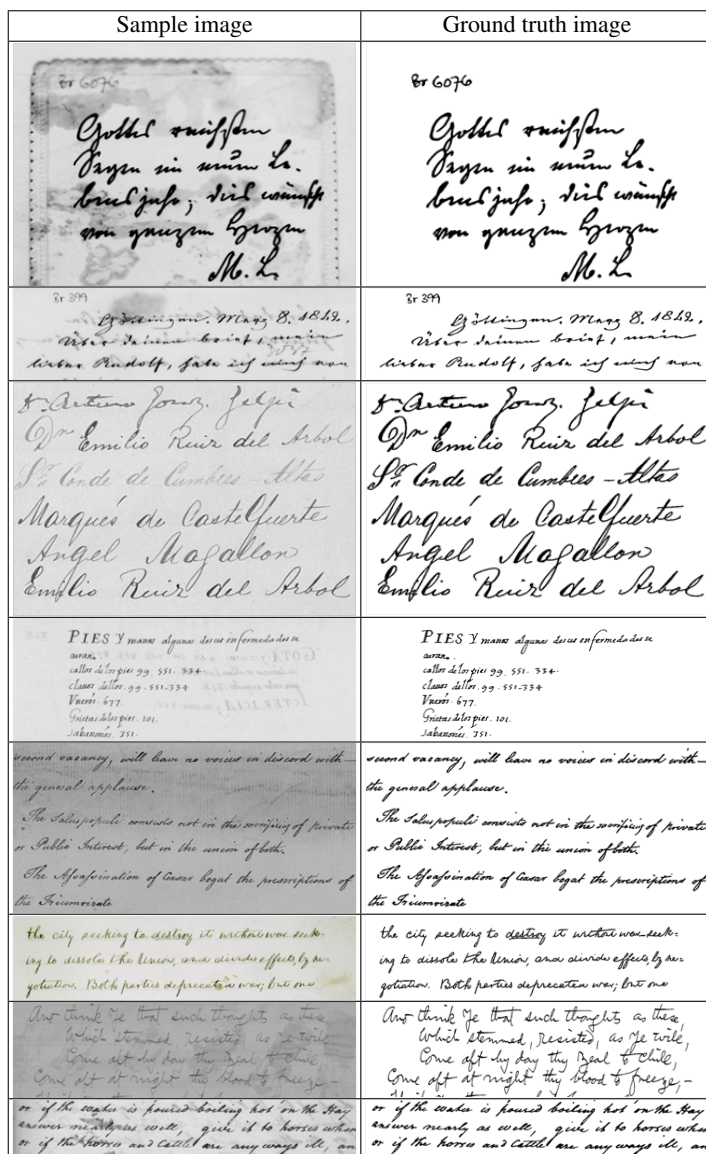 Sample image
Ground truth image
Br 6076
Gottes reichsten
Segen im neuen Le-
bensjahr; dies wünscht
von ganzem Herzen
M. L.
Br 6076
Gottes reichsten
Segen im neuen Le-
bensjahr; dies wünscht
von ganzem Herzen
M. L.
Br 399
Göttingen. März 8. 1842.
Über deinen brief, mein
lieber Rudolf, habe ich mich von
Br 399
Göttingen. März 8. 1842.
Über deinen brief, mein
lieber Rudolf, habe ich mich von
Dr. Arturo
Dn Emilio Ruiz del Arbol
Sr. Conde de Cumbres-Altas
Marqués de Castelfuerte
Angel Magallon
Emilio Ruiz del Arbol
Dr. Arturo
Dn Emilio Ruiz del Arbol
Sr. Conde de Cumbres-Altas
Marqués de Castelfuerte
Angel Magallon
Emilio Ruiz del Arbol
PIES Y manos algunas de sus enfermedades se
curan.
callos de los pies 99. 551. 334.
clauos dellos. 99. 551-334
Vneros. 677.
Grietas de los pies. 101.
Sabañones. 351.
PIES Y manos algunas de sus enfermedades se
curan.
callos de los pies 99. 551. 334.
clauos dellos. 99. 551-334
Vneros. 677.
Grietas de los pies. 101.
Sabañones. 351.
second vacancy, will leave no voices in discord with
the general applause.
The Salus populi consists not in the sacrificing of private
or Public Interest, but in the union of both.
The Assassination of Caesar begat the proscriptions of
the Triumvirate
second vacancy, will leave no voices in discord with
the general applause.
The Salus populi consists not in the sacrificing of private
or Public Interest, but in the union of both.
The Assassination of Caesar begat the proscriptions of
the Triumvirate
the city seeking to destroy it without war seek-
ing to dissolve the Union, and divide effects, by ne-
gotiation. Both parties deprecated war; but one
the city seeking to destroy it without war seek-
ing to dissolve the Union, and divide effects, by ne-
gotiation. Both parties deprecated war; but one
And think Ye that such thoughts as these,
Which stemmed, resisted, as Ye wile,
Come oft by day thy Zeal to chile,
Come oft at night thy blood to freeze,-
And think Ye that such thoughts as these,
Which stemmed, resisted, as Ye wile,
Come oft by day thy Zeal to chile,
Come oft at night thy blood to freeze,-
or if the water is poured boiling hot on the Hay
answer nearly as well, give it to horses when
or if the horses and Cattle are any ways ill, an
or if the water is poured boiling hot on the Hay
answer nearly as well, give it to horses when
or if the horses and Cattle are any ways ill, an